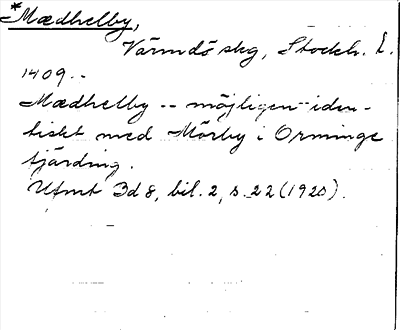 *Mædhelby,
Värmdö skg, Stockh. l.
1409.-
Mædhelby -- möjligen iden-
tiskt med Mörby i Orminge
fjärding.
Utmt Bd 8, bil. 2, s. 22 (1920).